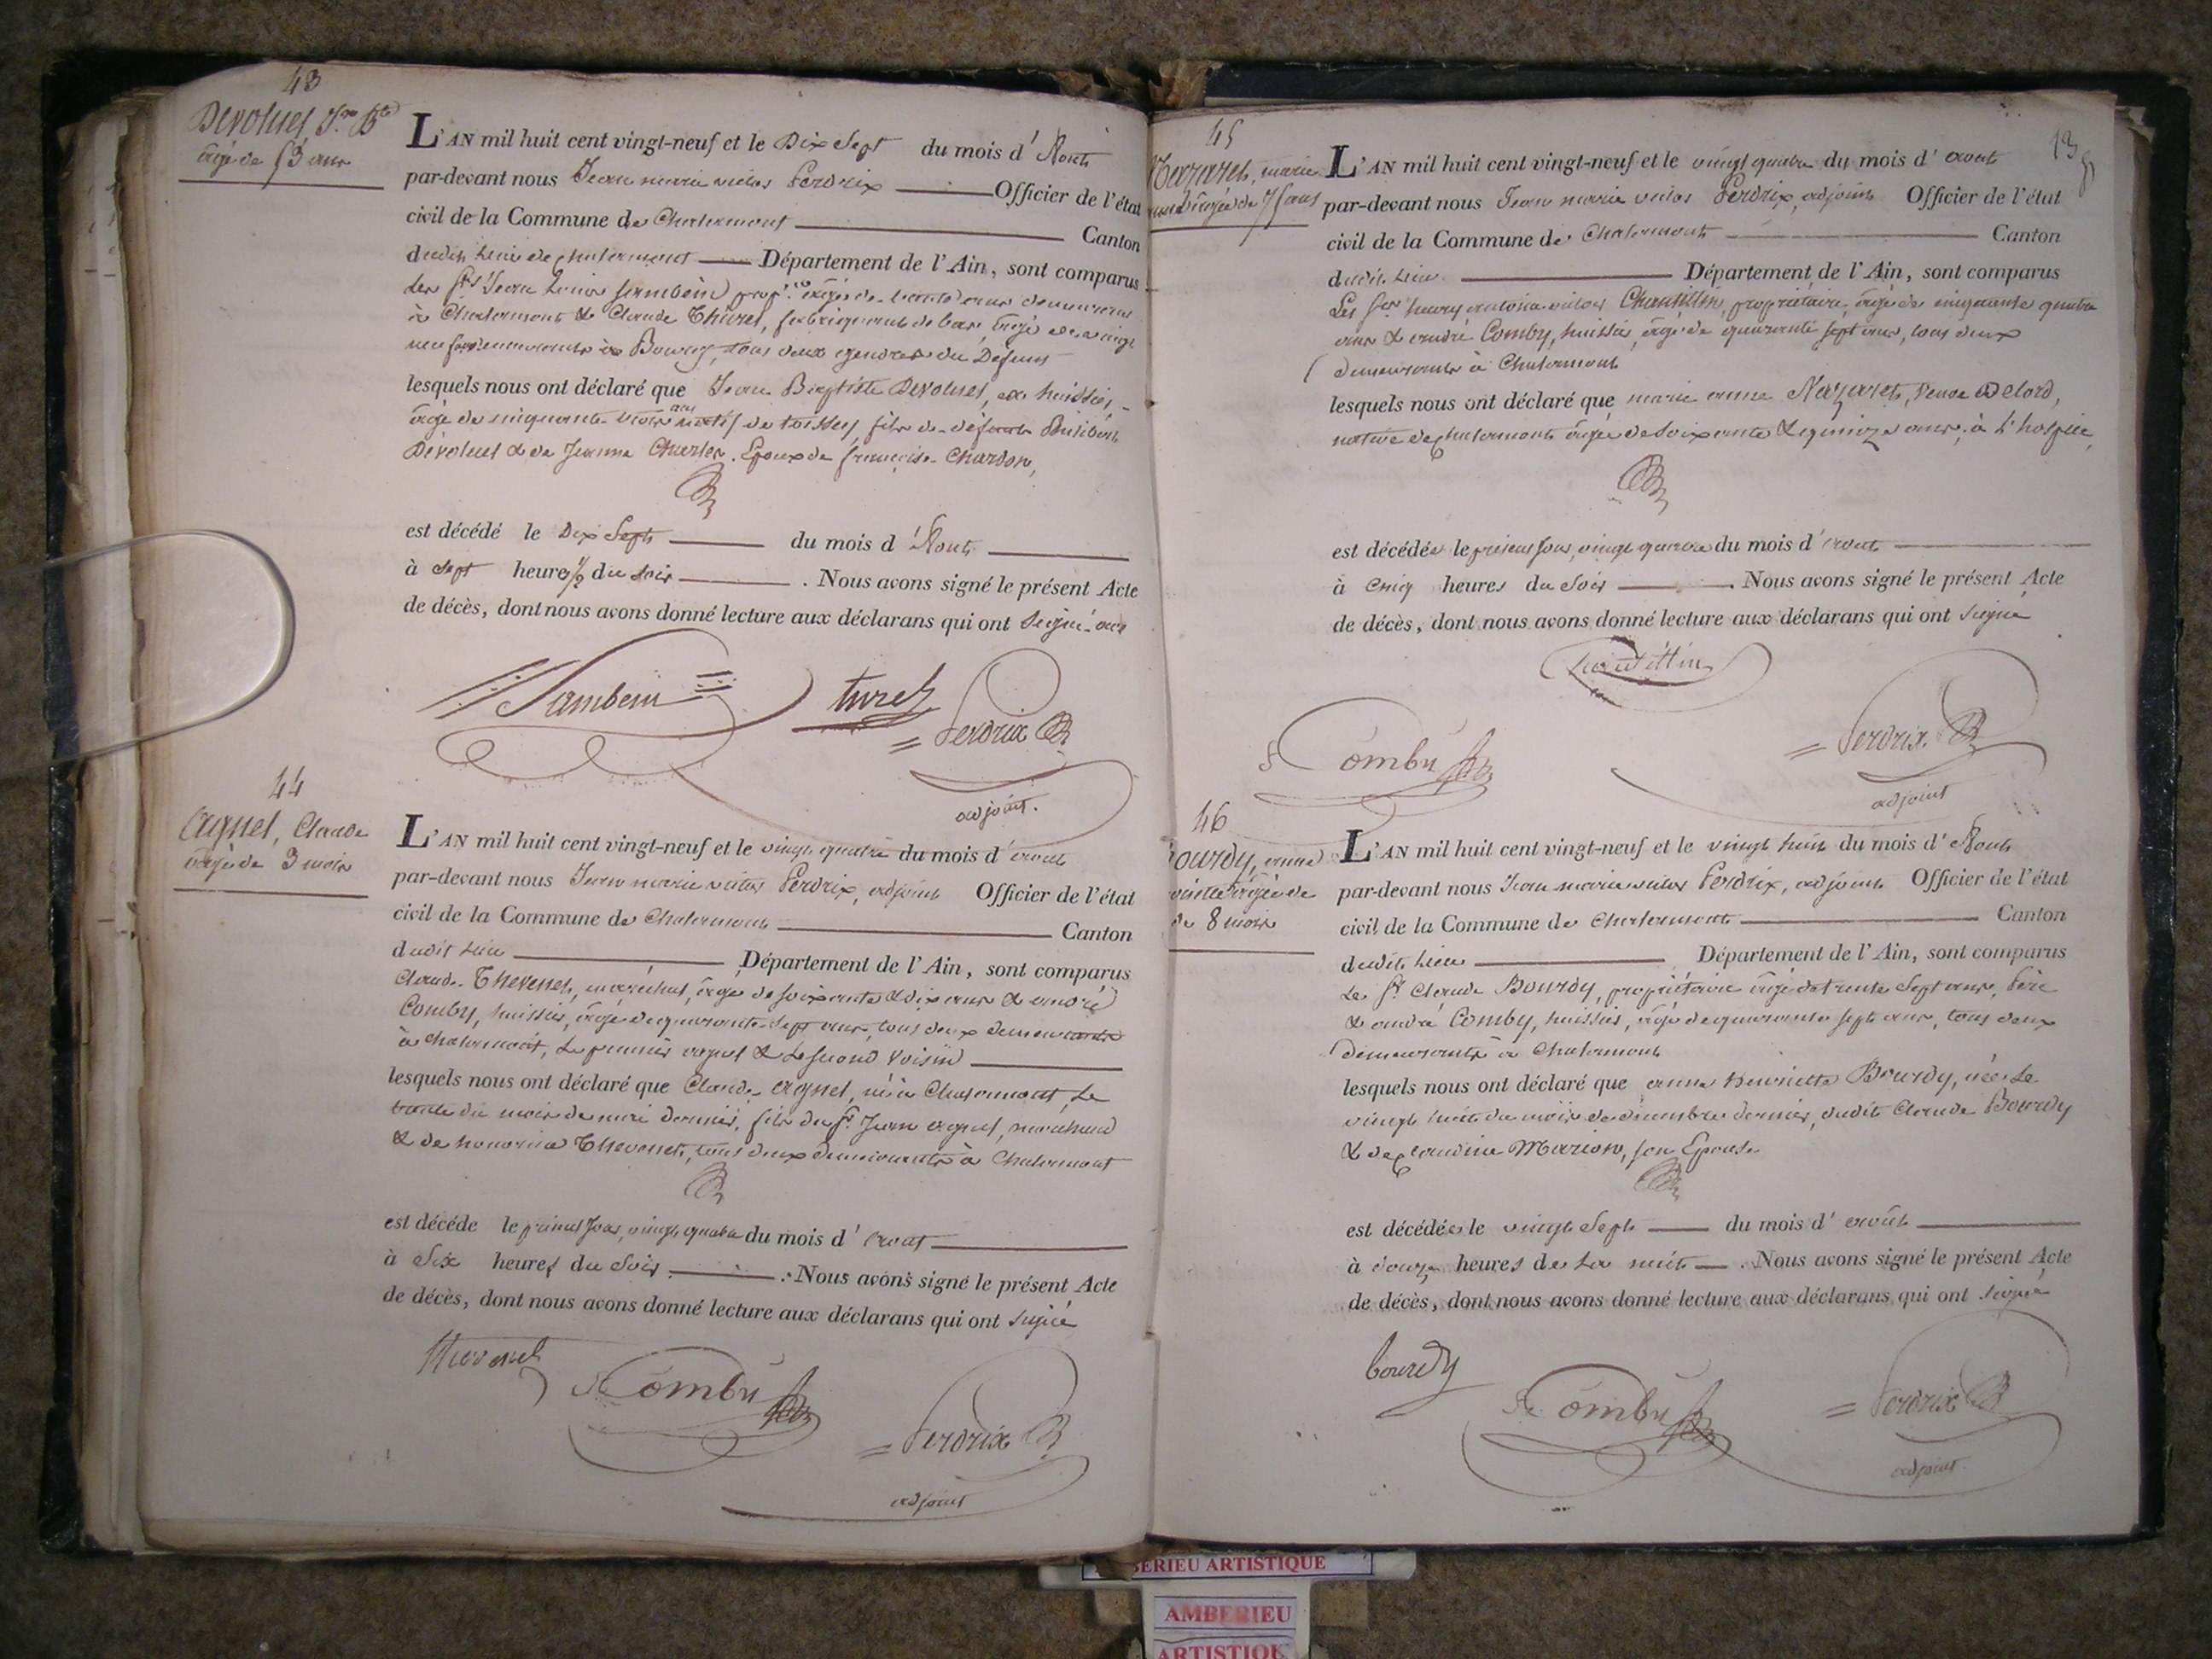 43
Devoluet, Jn Bte
âgé de 53 ans
L'AN mil huit cent vingt-neuf et le Dix Sept du mois d' Aout
par-devant nous Jean marie victor Perdrix Officier de l'état
civil de la Commune de Chalamont Canton
dudit Lieu de chalamont Département de l'Ain, sont comparus
Les Srs Jean Louis Jambein, propre âgé de trente ans demeurant
à Chalamont & Claude Thuret, fabriquant de bas, âgé de vingt
neuf demeurant à Bourg, tous deux gendres du Défunt
lesquels nous ont déclaré que Jean Baptiste Devoluet, ex huissier,
âgé de cinquante-trois ans natif de toissey fils de défunt Philibert
Devoluet & de Jeanne Charles. Epoux de françoise Chardon,
est décédé le Dix Sept du mois d' Aout
à Sept heures 1/2 du Soir . Nous avons signé le présent Acte
de décès, dont nous avons donné lecture aux déclarans qui ont Signé avec
Jambein turet Perdrix
adjoint.
44
Agnel, Claude
âgé de 3 mois
L'AN mil huit cent vingt-neuf et le vingt quatre du mois d' aout
par-devant nous Jean marie victor Perdrix, adjoint Officier de l'état
civil de la Commune de Chalamont Canton
dudit Lieu Département de l'Ain, sont comparus
Claude Thevenet, maréchal, âgé de soixante & dix ans & andré
Comby, huissier, âgé de quarante-sept ans, tous deux demeurants
à chalamont, Le premier ayeul & Le second Voisin
lesquels nous ont déclaré que Claude Agnel, né à Chalamont, Le
trente du mois de mai dernier, fils du Sr Jean agnel, marchand
& de honorine Thevenet, tous deux demeurants à Chalamont
est décédé le présent Jour, vingt quatre du mois d' aout
à Six heures du Soir . Nous avons signé le présent Acte
de décès, dont nous avons donné lecture aux déclarans qui ont Signé
thevenet Comby Perdrix
adjoint
45
Nazareth, marie
anne âgée de 75 ans
L'AN mil huit cent vingt-neuf et le vingt quatre du mois d' aout
par-devant nous Jean marie victor Perdrix, adjoint Officier de l'état
civil de la Commune de Chalamont Canton
dudit Lieu Département de l'Ain, sont comparus
Les Srs henry antoine victor Chaustillon, propriétaire, âgé de cinquante quatre
ans & andré Comby, huissier, âgé de quarante sept ans, tous deux
demeurants à Chalamont
lesquels nous ont déclaré que marie anne Nazareth, Veuve Delord,
native de chalamont âgée de soixante & quinze ans, à L'hospice,
est décédée le présent Jour, vingt quatre du mois d' aout
à Cinq heures du Soir . Nous avons signé le présent Acte
de décès, dont nous avons donné lecture aux déclarans qui ont signé
Comby Perdrix
adjoint
46
Bourdy, anne
âgée de
de 8 mois
L'AN mil huit cent vingt-neuf et le vingt huit du mois d' Aout
par-devant nous Jean marie victor Perdrix, adjoint Officier de l'état
civil de la Commune de Chalamont Canton
dudit Lieu Département de l'Ain, sont comparus
Le Sr Claude Bourdy, propriétaire âgé de trente Sept ans, Père
& andré Comby, huissier, âgé de quarante sept ans, tous deux
demeurants à Chalamont
lesquels nous ont déclaré que anne henriette Bourdy, née Le
vingt huit du mois de décembre dernier, dudit Claude Bourdy
& de claudine Marion, son Epouse
est décédée le vingt Sept du mois d' août
à onze heures de La nuit . Nous avons signé le présent Acte
de décès, dont nous avons donné lecture aux déclarans qui ont signé
bourdy Comby Perdrix
adjoint
AMBERIEU ARTISTIQUE
AMBERIEU
ARTISTIQUE